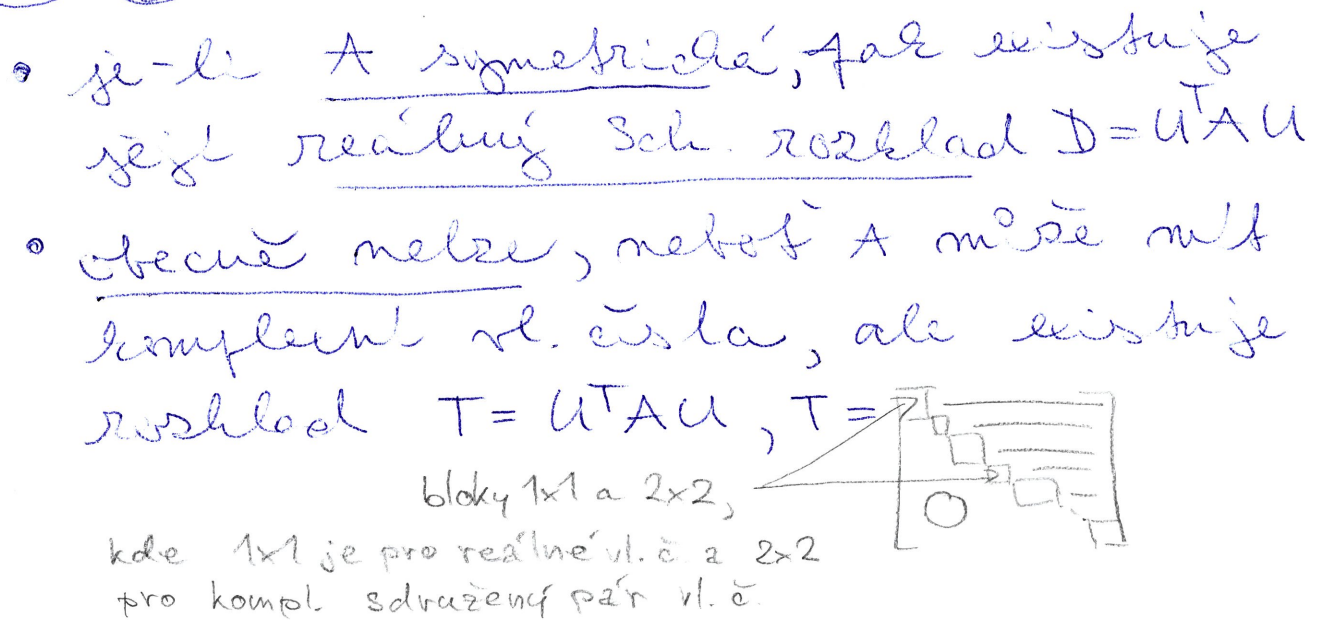 • je-li A symetrická, pak existuje
její reálný Sch. rozklad D = UᵀAU
• obecně nelze, neboť A může mít
komplexní vl. čísla, ale existuje
rozklad T = UᵀAU, T =
bloky 1x1 a 2x2,
0
kde 1x1 je pro reálné vl. č a 2x2
pro kompl. sdružený pár vl. č.